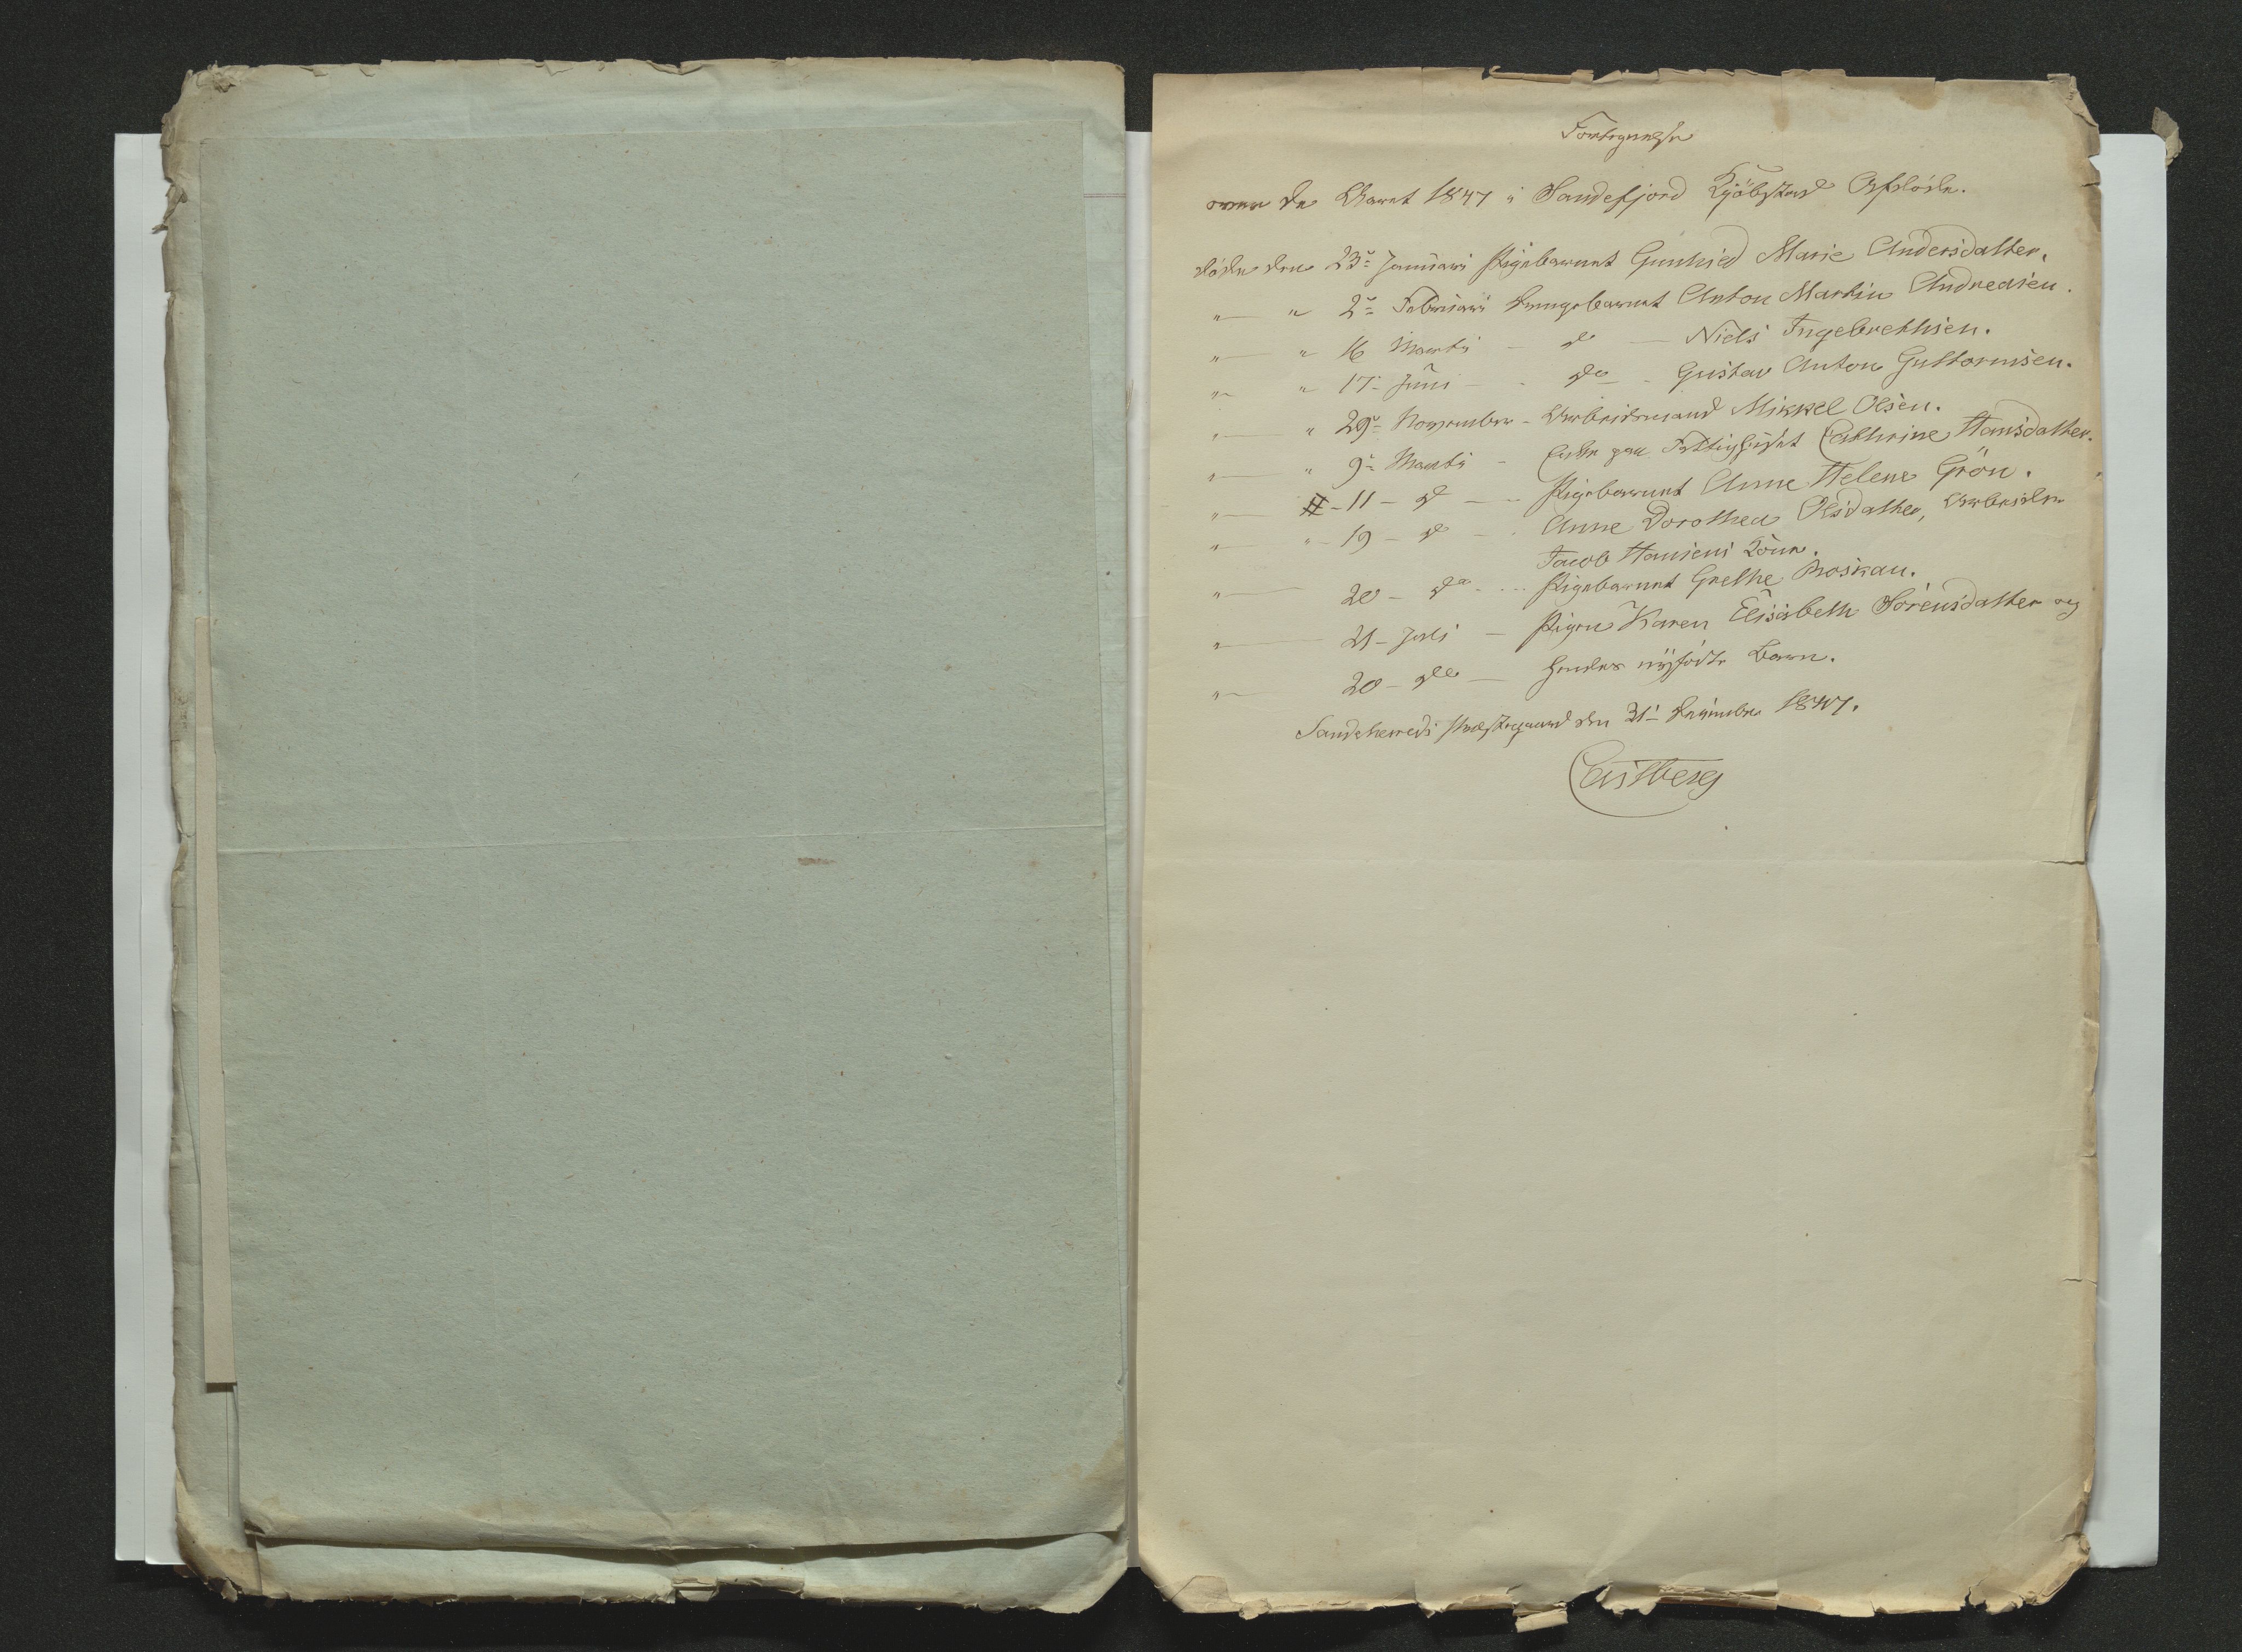 Fortegnelse
over de Aaret 1847 i Sandefjord Kjöbstad Afdöde.
döde den 23de Januari Pigebarnet Gunhild Marie Andersdatter.
" — " 2de Februari Drengebarnet Anton Martin Andreasen.
" — " 16 Marti — do — Niels Ingebrethsen.
" — " 17- Juni — do - Gustav Anton Guttormsen.
" — " 29de November - Arbeidsmand Mikkel Olsen.
" — " 9de Marti - paa Fattighuset Cathrine Hansdatter.
" — - 11 - do — Pigebarnet Anne Helene Grön.
" — " - 19 - do - Anne Dorothea Olsdatter, Arbeider
Jacob Hansens Kone.
" — 20 - do - Pigebarnet Grethe Roskau.
" — 21 - Juli — Pigen Karen Elisabeth Sörensdatter og
" — 20 - do — hendes nyfödte Barn.
Sandeherreds Præstegaard den 31te December 1847.
Castberg